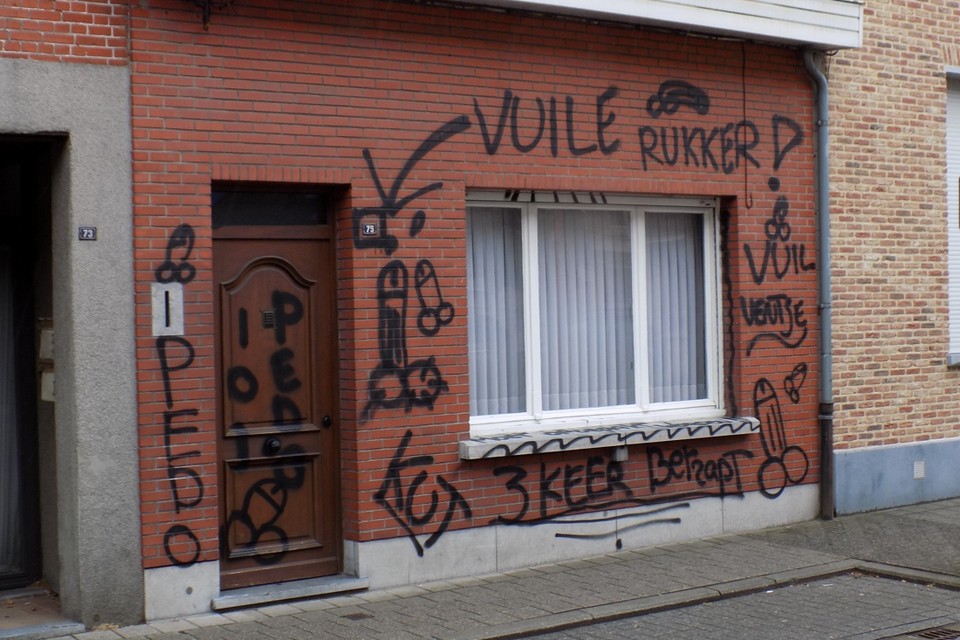 VUILE
RUKKER!
73
75
VUIL
VENTJE
I
PEDO
I
PEDO
KUT
3 KEER Betrapt